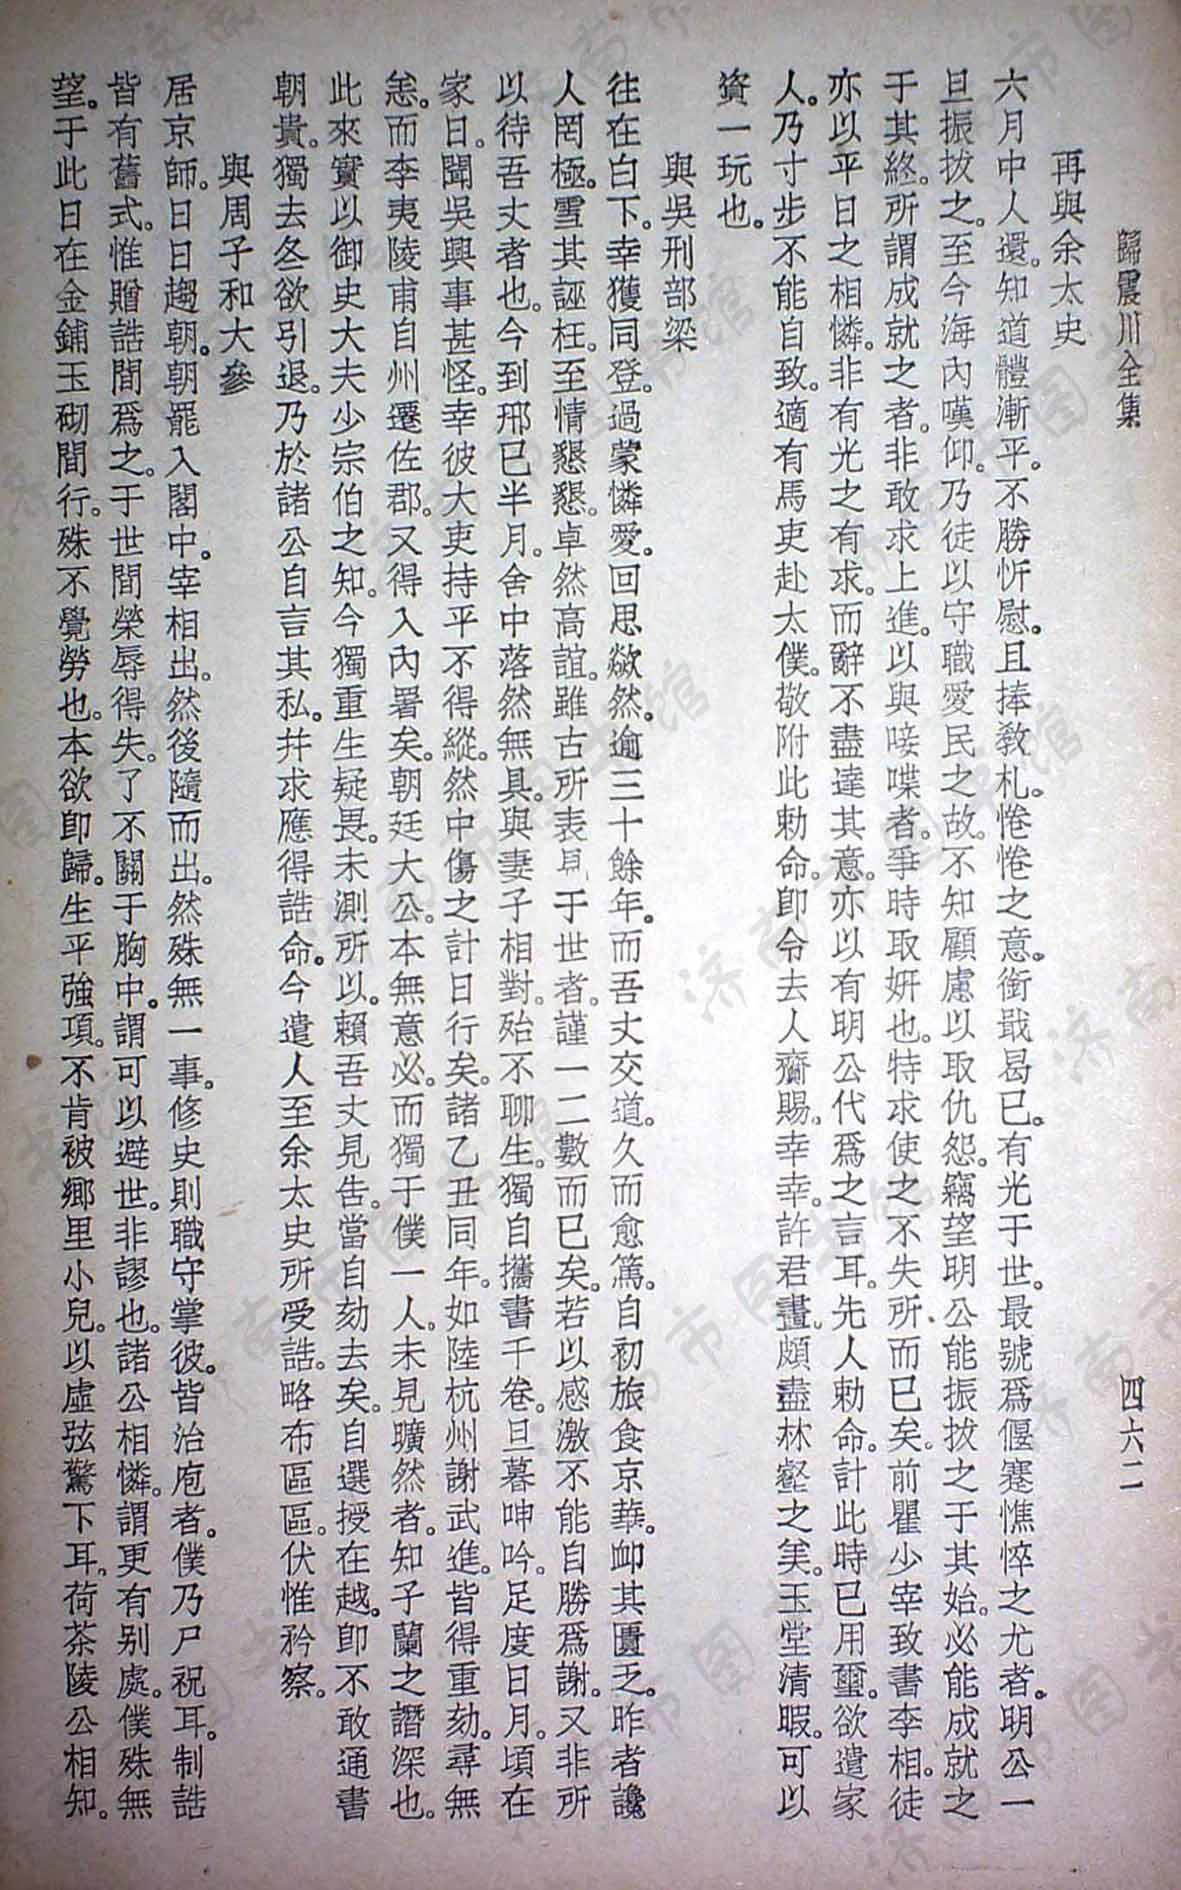 歸震川全集
四六二
再與余太史
六月中人還。知道體漸平。不勝忻慰。且捧敎札。惓惓之意。銜戢曷已。有光于世。最號爲偃蹇憔悴之尤者。明公一
旦振拔之。至今海內嘆仰。乃徒以守職愛民之故。不知顧慮以取仇怨。竊望明公能振拔之于其始。必能成就之
于其終。所謂成就之者。非敢求上進。以與唼喋者。爭時取姸也。特求使之不失所而已矣。前瞿少宰致書李相。徒
亦以平日之相憐。非有光之有求。而辭不盡達其意。亦以有明公代爲之言耳。先人勅命。計此時已用璽。欲遣家
人。乃寸步不能自致。適有馬吏赴太僕。敬附此勅命。卽令去人齎賜。幸幸。許君畫。頗盡林壑之美。玉堂清暇。可以
資一玩也。
與吳刑部梁
往在白下。幸獲同登。過蒙憐愛。回思歘然。逾三十餘年。而吾丈交道。久而愈篤。自初旅食京華。卹其匱乏。昨者讒
人罔極。雪其誣枉。至情懇懇。卓然高誼。雖古所表見于世者。謹一二數而已矣。若以感激不能自勝爲謝。又非所
以待吾丈者也。今到邢已半月。舍中落然無具。與妻子相對。殆不聊生。獨自攜書千卷。旦暮呻吟。足度日月。頃在
家日。聞吳興事甚怪。幸彼大吏持平不得縱。然中傷之計日行矣。諸乙丑同年。如陸杭州謝武進。皆得重劾。尋無
恙。而李夷陵甫自州遷佐郡。又得入內署矣。朝廷大公。本無意必。而獨于僕一人。未見曠然者。知子蘭之譖深也。
此來實以御史大夫少宗伯之知。今獨重生疑畏。未測所以。賴吾丈見告。當自劾去矣。自選授在越。卽不敢通書
朝貴。獨去冬欲引退。乃於諸公自言其私。幷求應得誥命。今遣人至余太史所受誥。略布區區。伏惟矜察。
與周子和大參
居京師。日日趨朝。朝罷入閣中。宰相出。然後隨而出。然殊無一事。修史則職守掌彼。皆治庖者。僕乃尸祝耳。制誥
皆有舊式。惟贈誥間爲之。于世間榮辱得失。了不關于胸中。謂可以避世。非謬也。諸公相憐。謂更有別處。僕殊無
望。于此日在金鋪玉砌間行。殊不覺勞也。本欲卽歸。生平強項。不肯被鄉里小兒。以虛弦驚下耳。荷茶陵公相知。